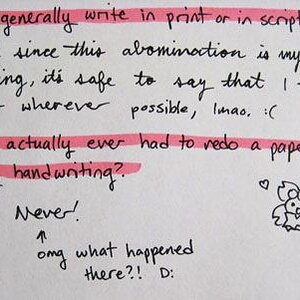 generally write in print or in script
since this abomination is my
ing, it's safe to say that I
wherever possible, lmao. :(
actually ever had to redo a pape
handwriting?
Never!
omg what happened
there?! D: